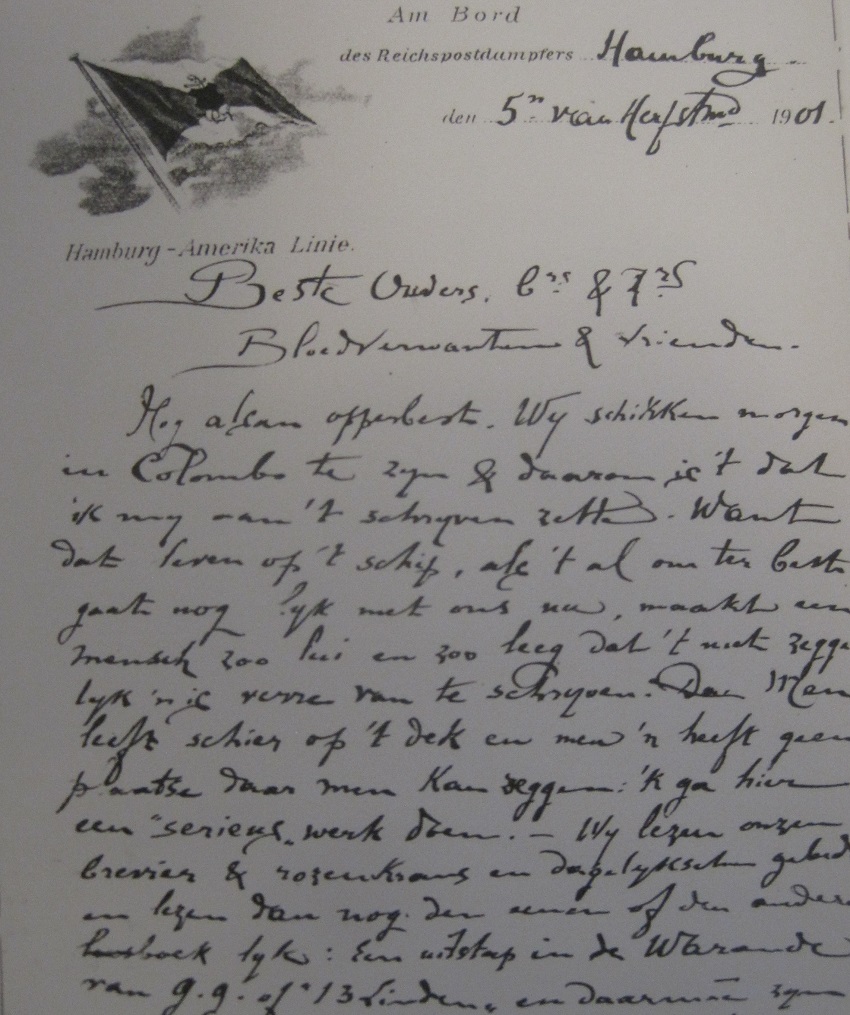 Am Bord
des Reichspostdampfers Hamburg
den 5n van Herfstmd 1901.
Hamburg-Amerika Linie.
Beste Ouders, brs & Zrs
Bloedverwanten & vrienden.
Nog alsan opperbest. Wy schikken morgen
in Colombo te zyn & daarom is 't dat
ik my aan 't schryven zette. Want
dat leven op 't schip, als 't al om ter beste
gaat nog lyk met ons nu, maakt een
mensch zoo lui en zoo leeg dat 't niet zegge
lyk 'n is verre van te schryven. Men
leeft schier op 't dek en men 'n heeft geen
plaatse daar men kan zeggen: 'k ga hier
een "serieus" werk doen. — Wy lezen onzen
brevier & rozenkrans en dagelykschen gebed
en lezen dan nog den eenen of den andere
boek lyk: Een uitstap in de Warande
van G.G. of "13 Linden" en daarmee zyn